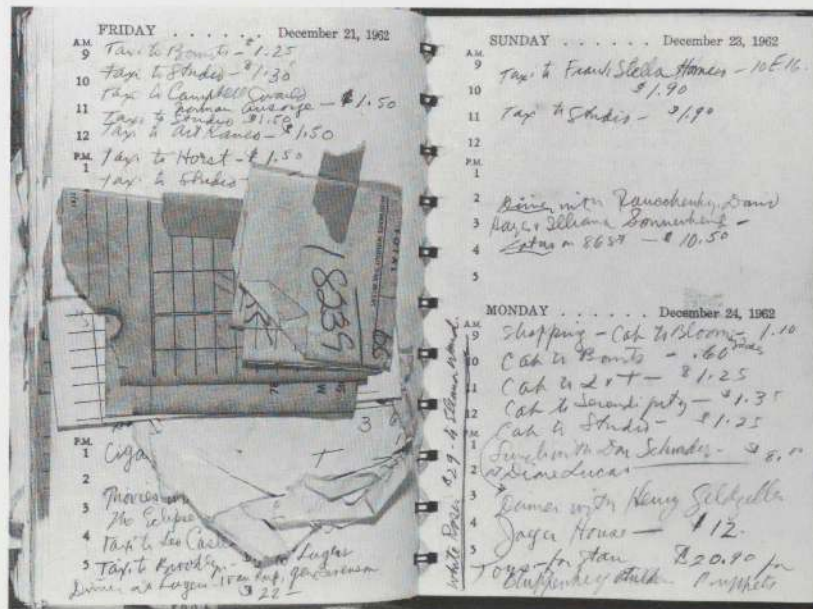 FRIDAY . . . . . . December 21, 1962
A.M.
9 Taxi to Bonwits - $1.25
10 taxi to Studio - $1.30
Taxi to Campbell
11 Norman - $1.50
Taxi to Studio $1.50
12 Taxi to Art Kanes - $1.50
P.M.
1 Taxi to Horst - $1.50
Taxi to Studio
TOTAL
18239
3
P.M.
1 Ciga
2
Movies
3 The Eclipse
4 Taxi to Leo Caste
5 Taxi to Brooklyn - to Lugers
Dinner at Lugers
$22 -
SUNDAY . . . . . . December 23, 1962
A.M.
9 Taxi to Frank Stella - 10 E 16.
10 $1.90
11 Taxi to Studio - $1.90
12
P.M.
1
2 Dinner with Rauschenberg, David
3 Hays & Illiana Sonnenbend -
4 on 86 St - $10.50
5
MONDAY . . . . . . December 24, 1962
A.M.
9 Shopping - Cab to Blooming - 1.10
10 Cab to Bonwits - .60
11 Cab to L & T - $1.25
12 Cab to Serendipity - $1.35
P.M.
Cab to Studio - $1.25
1 Lunch with Dan Schrader - $8.00
2 Dine Lucas
3 Dinner with Henry Geldzeller
4 Jager House - $12.
5 Toys for $20.90 for
White Roses $29 - to Eleanor Ward.